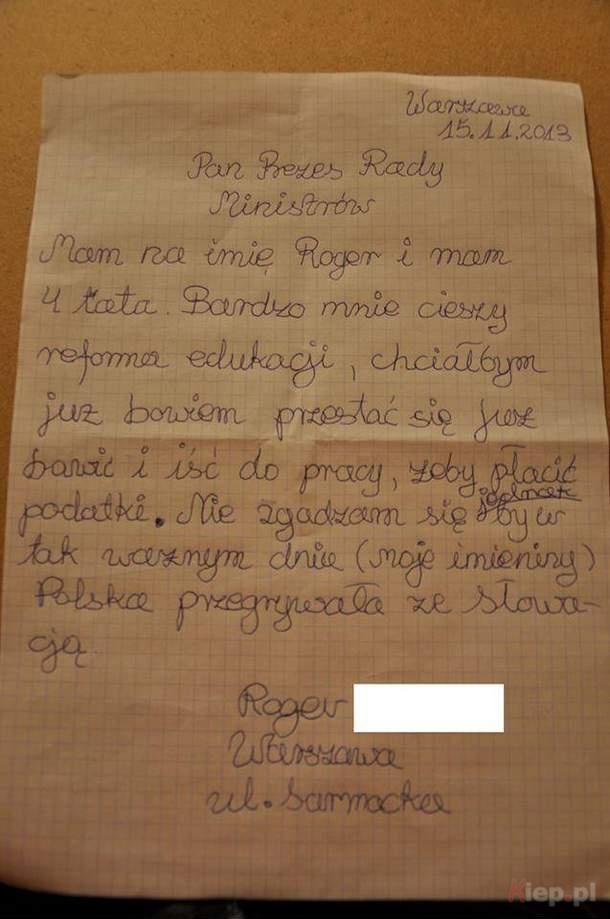 Warszawa
15.11.2013
Pan Prezes Rady
Ministrów
Mam na imię Roger i mam
4 lata. Bardzo mnie cieszy
reforma edukacji, chciałbym
juz bowiem przestać się juz
bawić i iść do pracy, zeby płacić
podatki. Nie zgadzam się jednak by w
tak waznym dniu (moje imieniny)
Polska przegrywała ze Słowa-
cją.
Roger
Warszawa
ul. Sarmacka
Kiep.pl